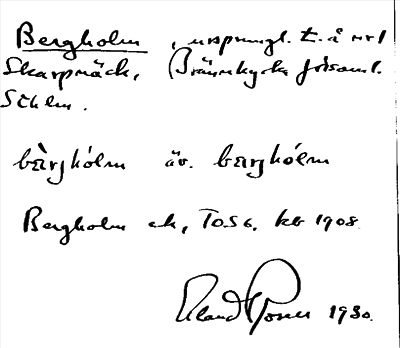 Bergholm, ursprungl. t. å nr 1
Skarpnäck, Brännkyrka församl.
Sthlm.
bàrghólm äv. barghólm
Bergholm ek, T0.56. kb 1908.
Erland Rosell 1930.